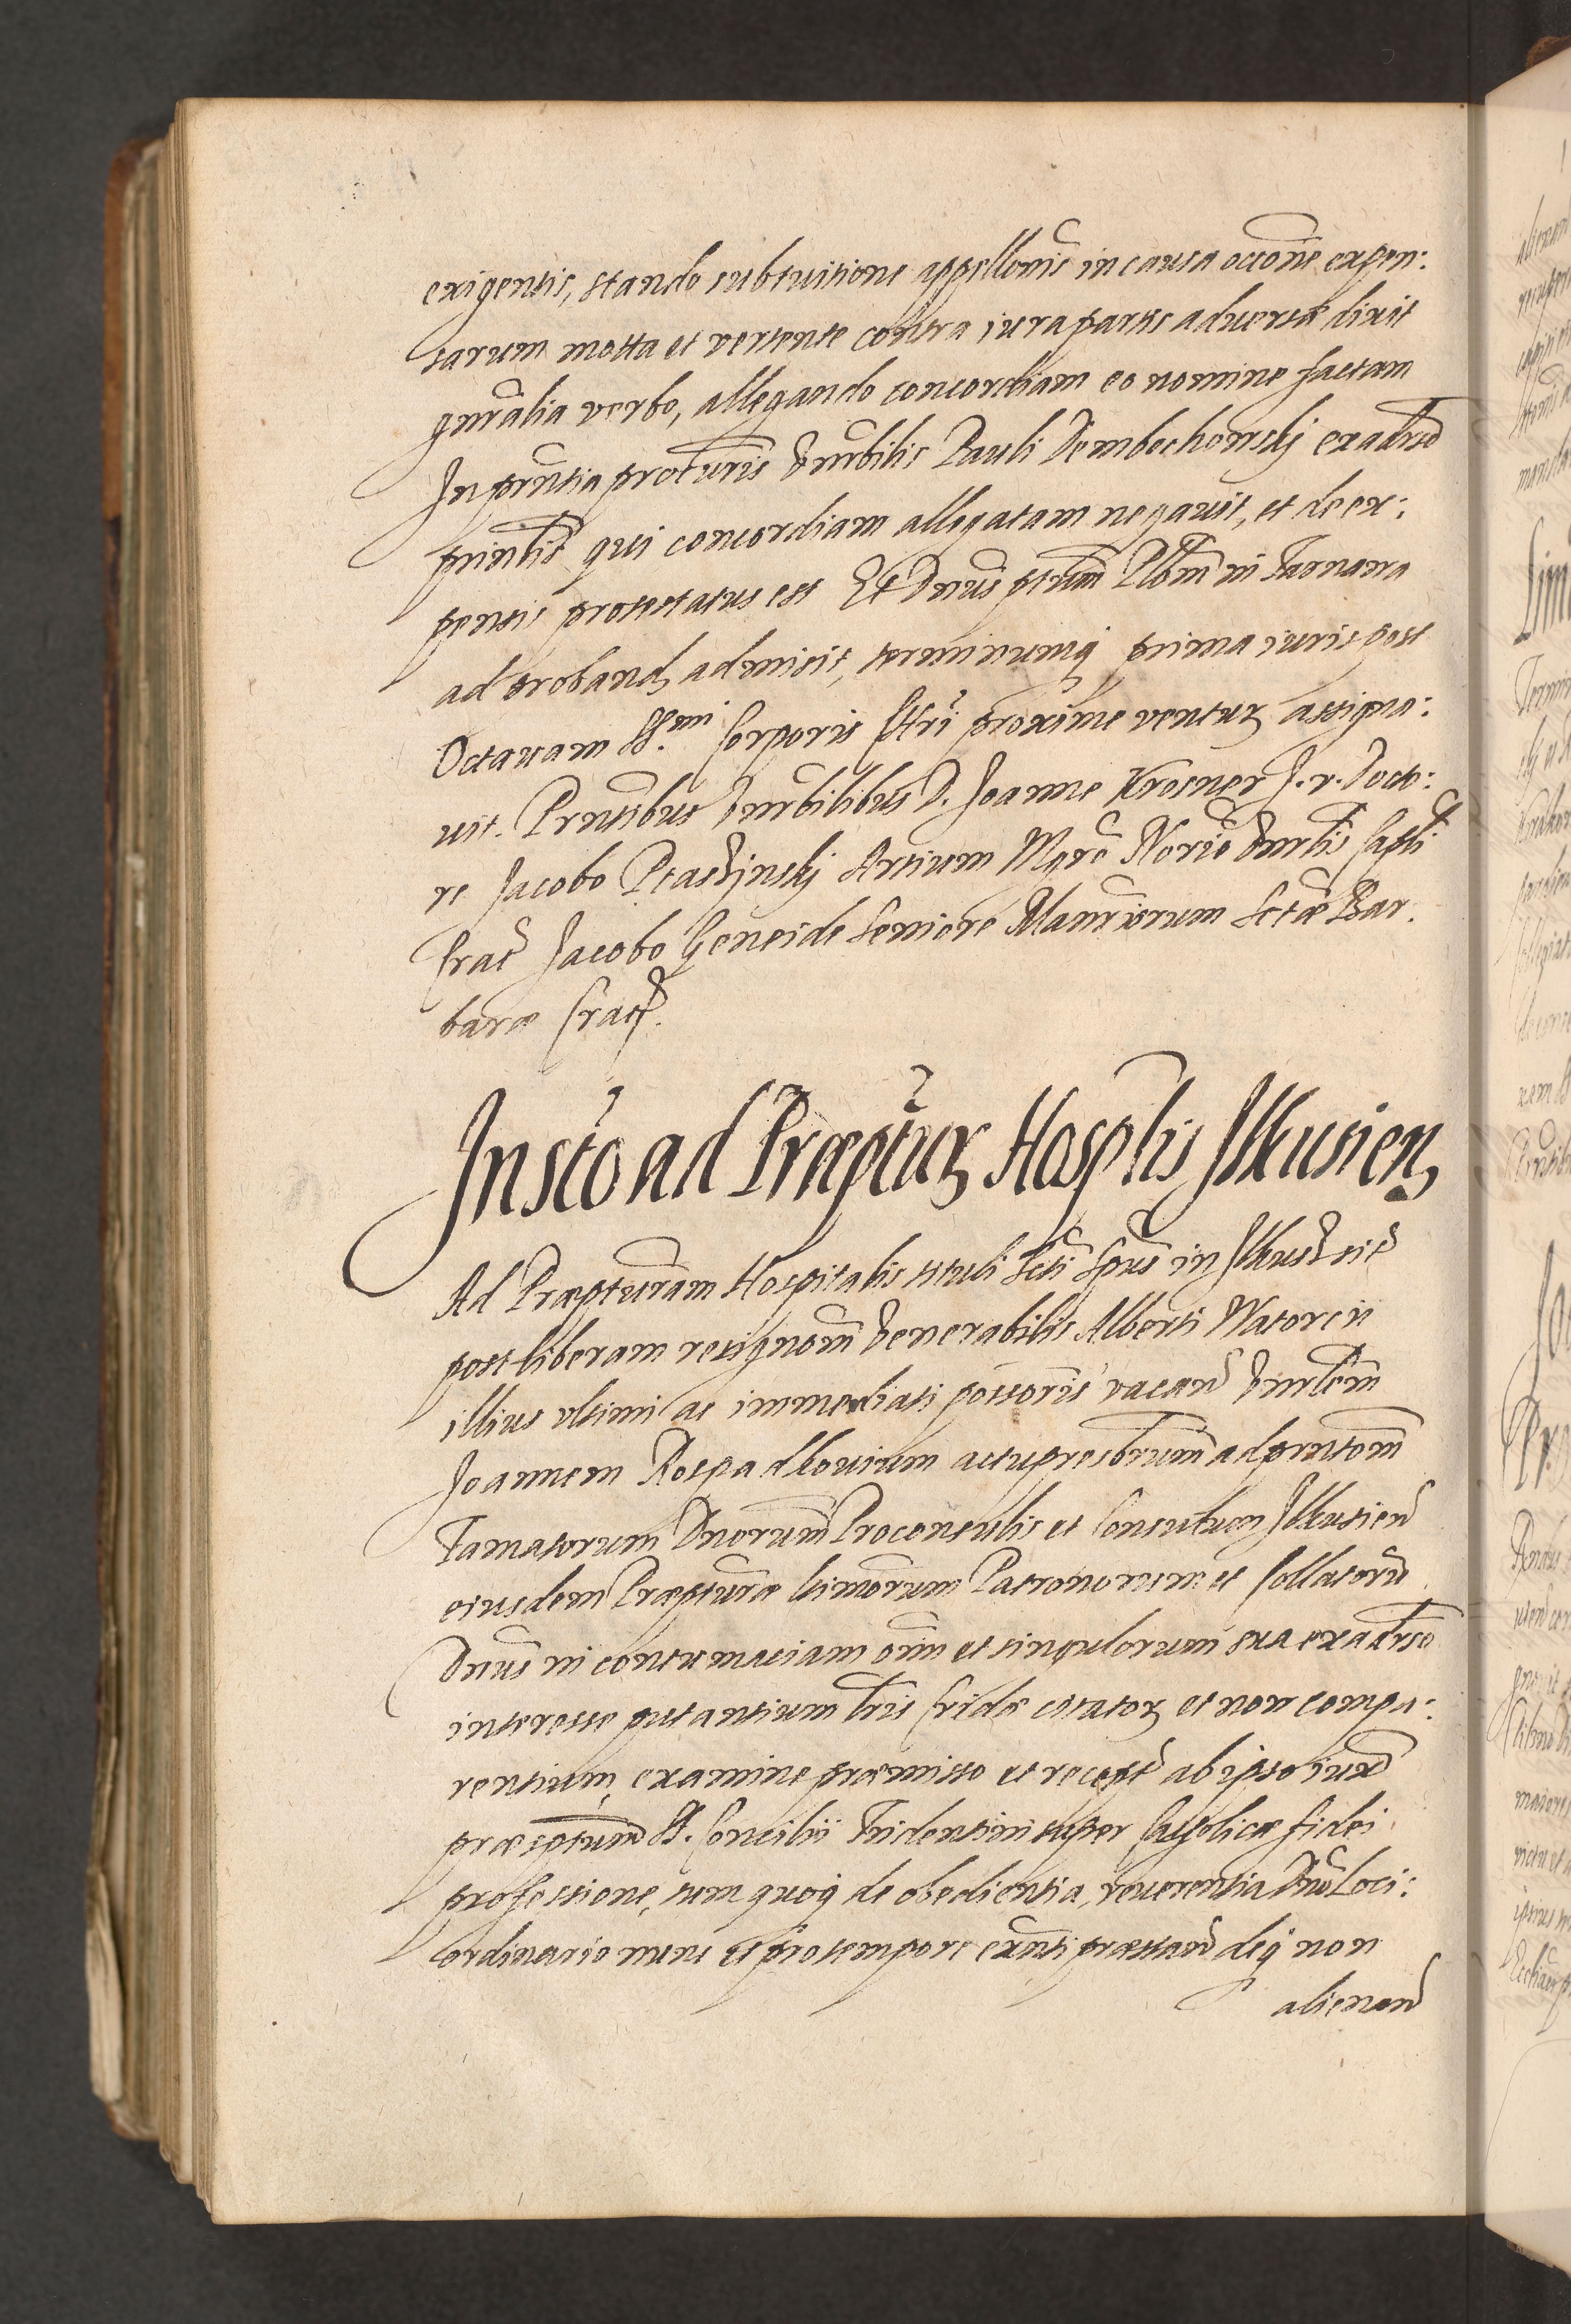 exigentis, stando sub tuitione appellonis in causa occone expen:
sarum motta et vertente contra iura partis adversae dixit
gnralia verbo, allegando concordiam eo nomine factam
In prntia procuris Vnrbilis Pauli Dembochowskj ex adverso
prinlis qui concordiam allegatam negavit, et de ex:
pensis protestatus est Et Dnus Plbm in Tarnawa
ad proband admisit, terminumq prima iuris post
Octavam SS.mi Corporis Chri proxime ventur assigna:
vit. Prntibus Vnrbilibus D. Joanne Krosner J. v. Docto:
re Jacobo Ptaszinskj Artium Mgro Norio Vnrlis Capli
Crac Jacobo Goneide seniore Mansiorum Sctae Bar:
barae Crac.
Insto ad Præptur Hosplis Ilkusien
Ad Præpturam Hospitalis tituli Scti Spus in Ilkusz sit
post liberam resignom Venerabilis Alberti Watorcii
illius ultimi ac immediati possoris vacan Vnrlem
Joannem Rospadkovium actu presbrum ad prntom
Famatorum Dnorum Proconsulis et Consulum Ilkusien
eiusdem Præpturæ ltimorum Patronorum et Collatorum
Dnus in contumaciam oim et singulorum sua ex adverso
interesse putantium lris Cridæ citator et non compa:
rentium, examine præmisso et recept ab ipso iuxa
præscptum S. Concilii Tridentini super Catholicæ fidei
professione, tum quoq de obedientia, reverentia Dno Loci:
ordinario nunc et pro tempore exnti præstan deq non
alienan